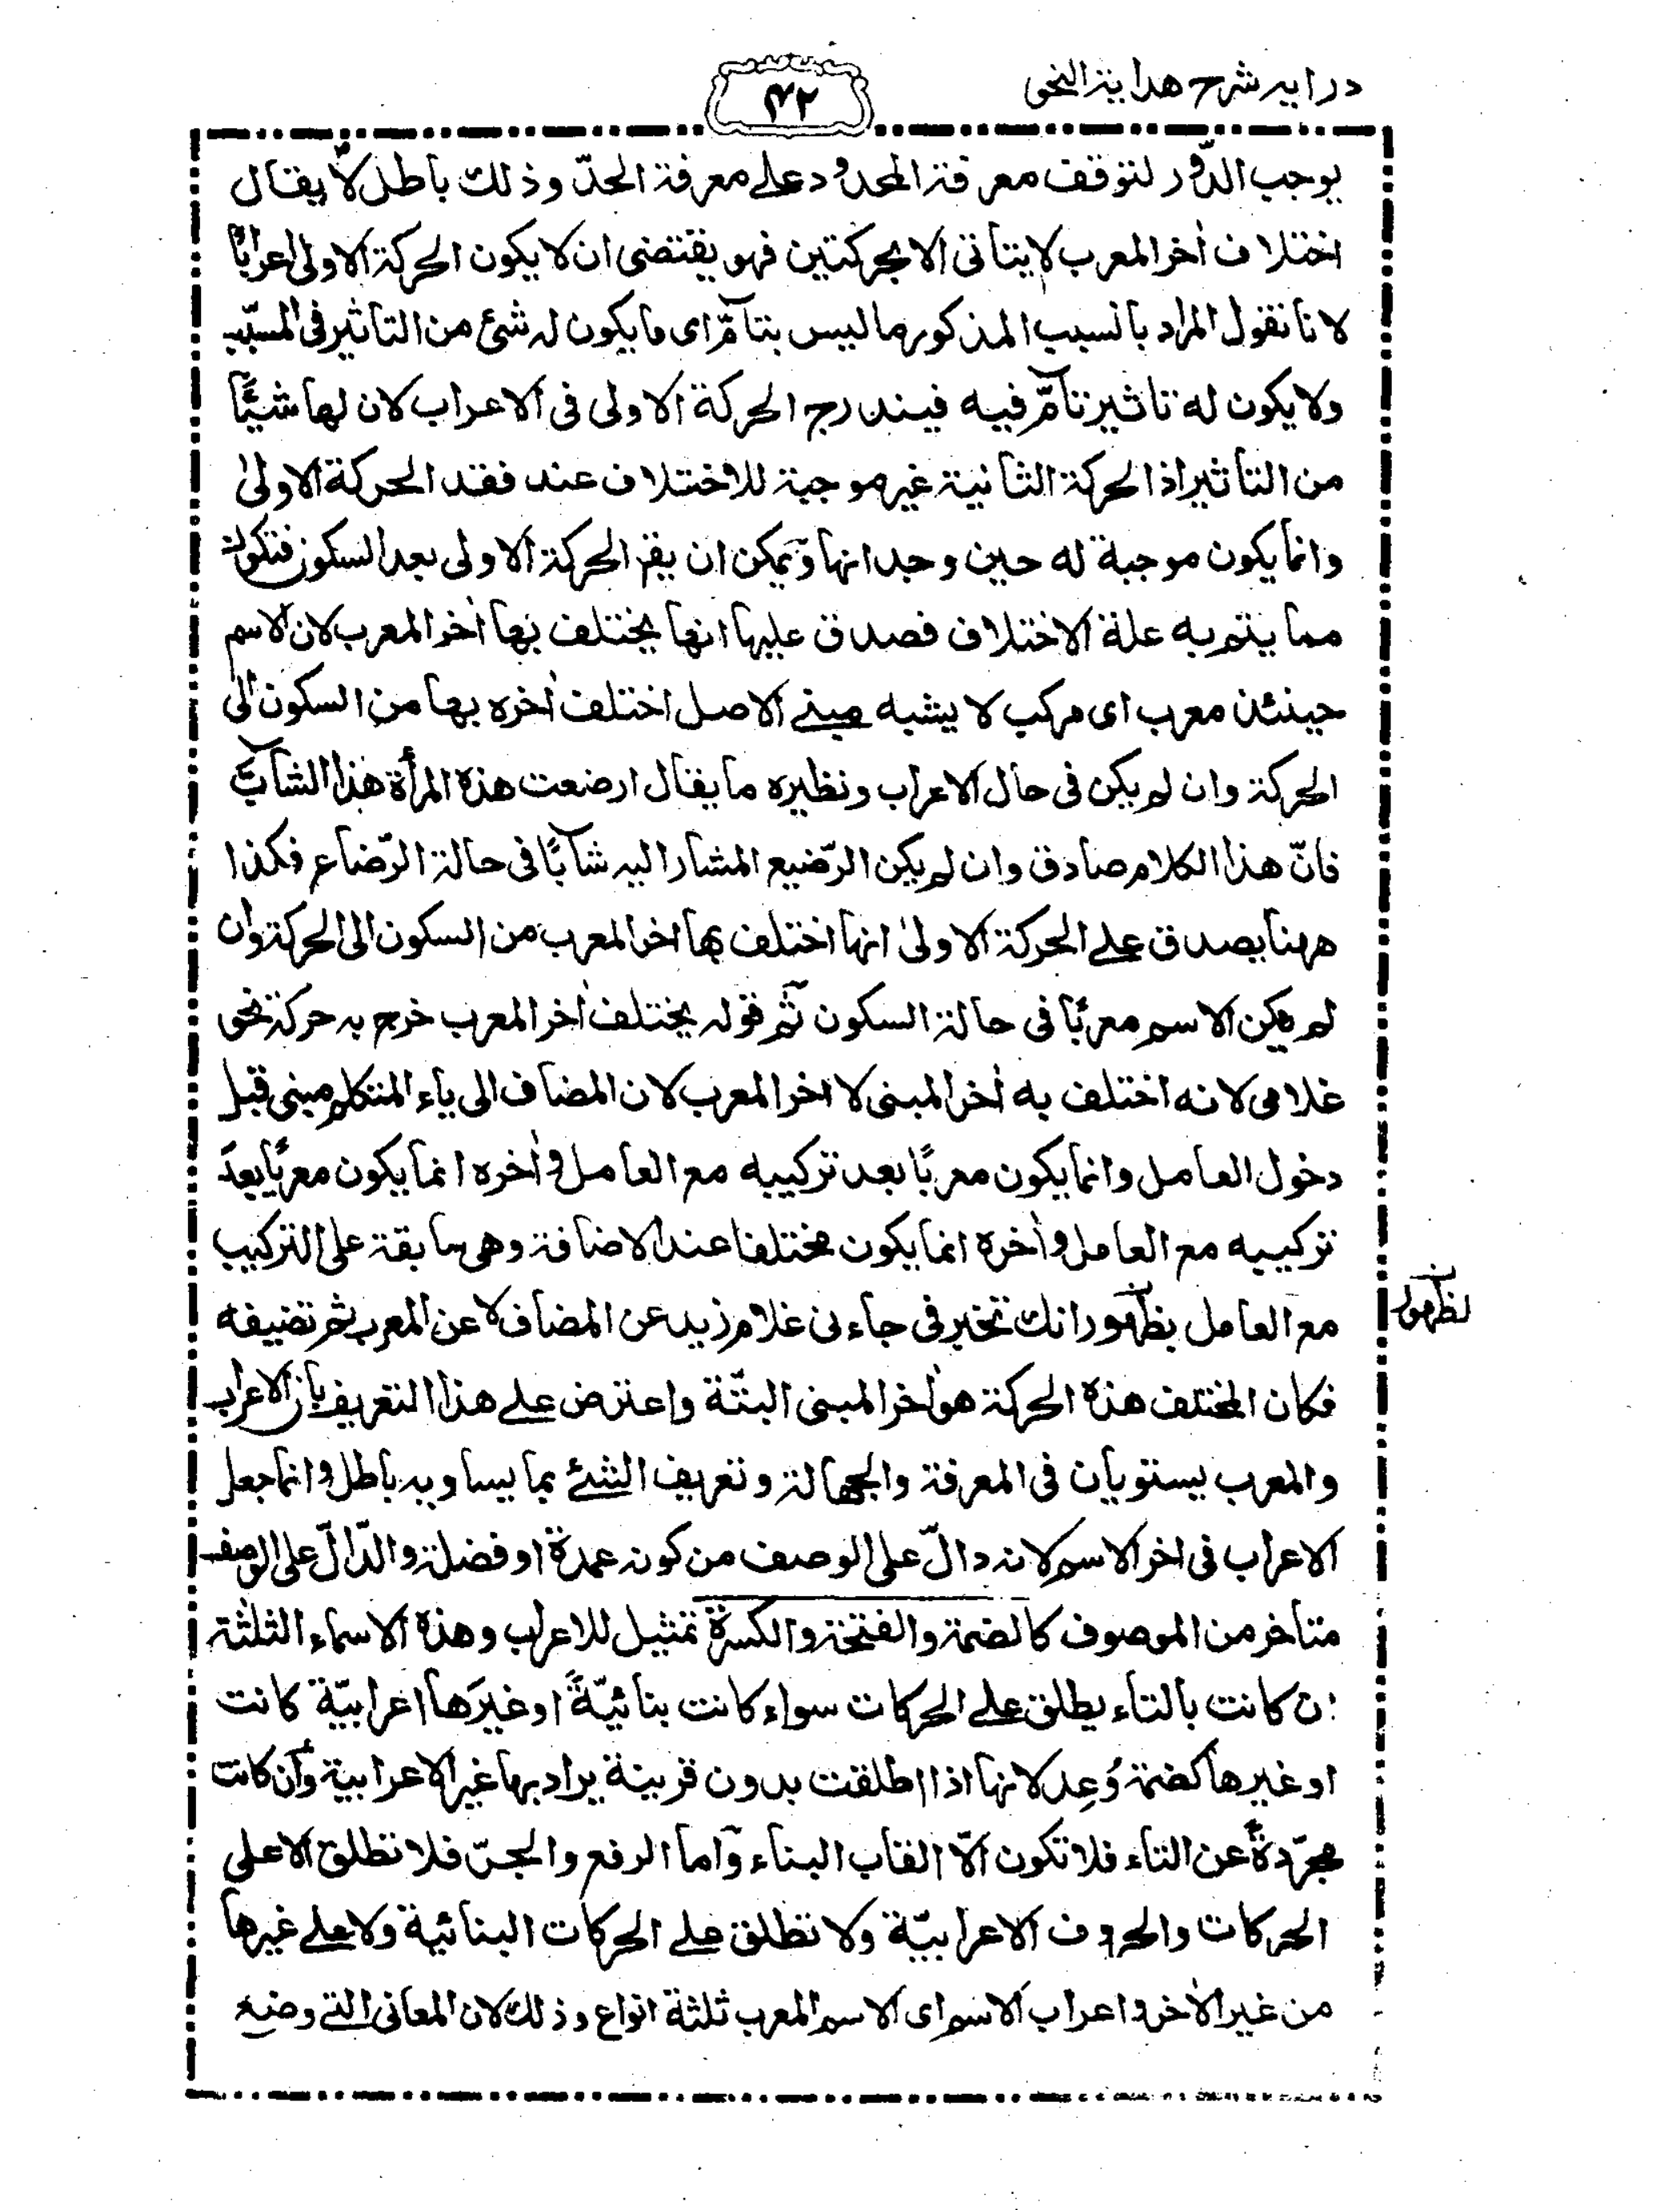 درايه شرح هداية النحو
۴۲
يوجب الدَّور لتوقف معرفة المحدود على معرفة الحدّ وذلك باطل لا يقال
اختلاف أخر المعرب لا يتأتى الا بحركتين فهو يقتضى ان لا يكون الحركة الاولى اعرابًا
لانا نقول المراد بالسبب المذكور ما ليس بتامّ اى ما يكون له شئ من التاثير فى المسبّب
ولا يكون له تاثير تامّ فيه فيندرج الحركة الاولى فى الاعراب لان لها شيئًا
من التأثير اذ الحركة الثانية غير موجبة للاختلاف عند فقد الحركة الاولىٰ
وانما يكون موجبة له حين وجدانها ويمكن ان يقع الحركة الاولى بعد السكون فتكون
مما يتم به علة الاختلاف فصدق عليها انها يختلف بها أخر المعرب لان الاسم
حينئذ معرب اى مركب لا يشبه مبنى الاصل اختلف أخره بها من السكون الى
الحركة وان لم يكن فى حال الاعراب ونظيره ما يقال ارضعت هذه المرأة هذا الشابّ
فانّ هذا الكلام صادق وان لم يكن الرّضيع المشار اليه شابًّا فى حالة الرّضاع فكذا
ههنا يصدق على الحركة الاولىٰ انها اختلف بها اخر المعرب من السكون الى الحركة وان
لم يكن الاسم معربًا فى حالة السكون ثم قوله يختلف أخر المعرب خرج به حركة نحو
غلامى لانه اختلف به أخر المبنى لا اخر المعرب لان المضاف الى ياء المتكلم مبنى قبل
دخول العامل وانما يكون معربًا بعد تركيبه مع العامل وأخره انما يكون معربًا بعد
تركيبه مع العامل وأخره انما يكون مختلفا عند الاضافة وهى سابقة على التركيب
مع العامل بظهور انك تخبر فى جاءنى غلام زيد عن المضاف لا عن المعرب ثم تضيفه
لظهور
فكان المختلف هذه الحركة هو أخر المبنى البتّة واعترض على هذا التعريف بان الاعراب
والمعرب يستويان فى المعرفة والجهالة وتعريف الشئ بما يساويه باطل وانما جعل
الاعراب فى اخر الاسم لانه دالّ على الوصف من كونه عمدة او فضلة والدّالّ على الوصف
متأخر من الموصوف كالضمة والفتحة والكسرة تمثيل للاعراب وهذه الاسماء الثلثة
ان كانت بالتاء يطلق على الحركات سواء كانت بنائيّةً او غيرَها اعرابيّة كانت
او غيرها كضمة وُعِد لانها اذا اطلقت بدون قرينة يراد بها غير الاعرابية وان كانت
مجرّدةً عن التاء فلا تكون الّا القاب البناء وآما الرفع والجرّ فلا تطلق الا على
الحركات والحروف الاعرابيّة ولا تطلق على الحركات البنائية ولا على غيرها
من غير الأخر واعراب الاسم اى الاسم المعرب ثلثة انواع وذلك لان المعانى التى وضع